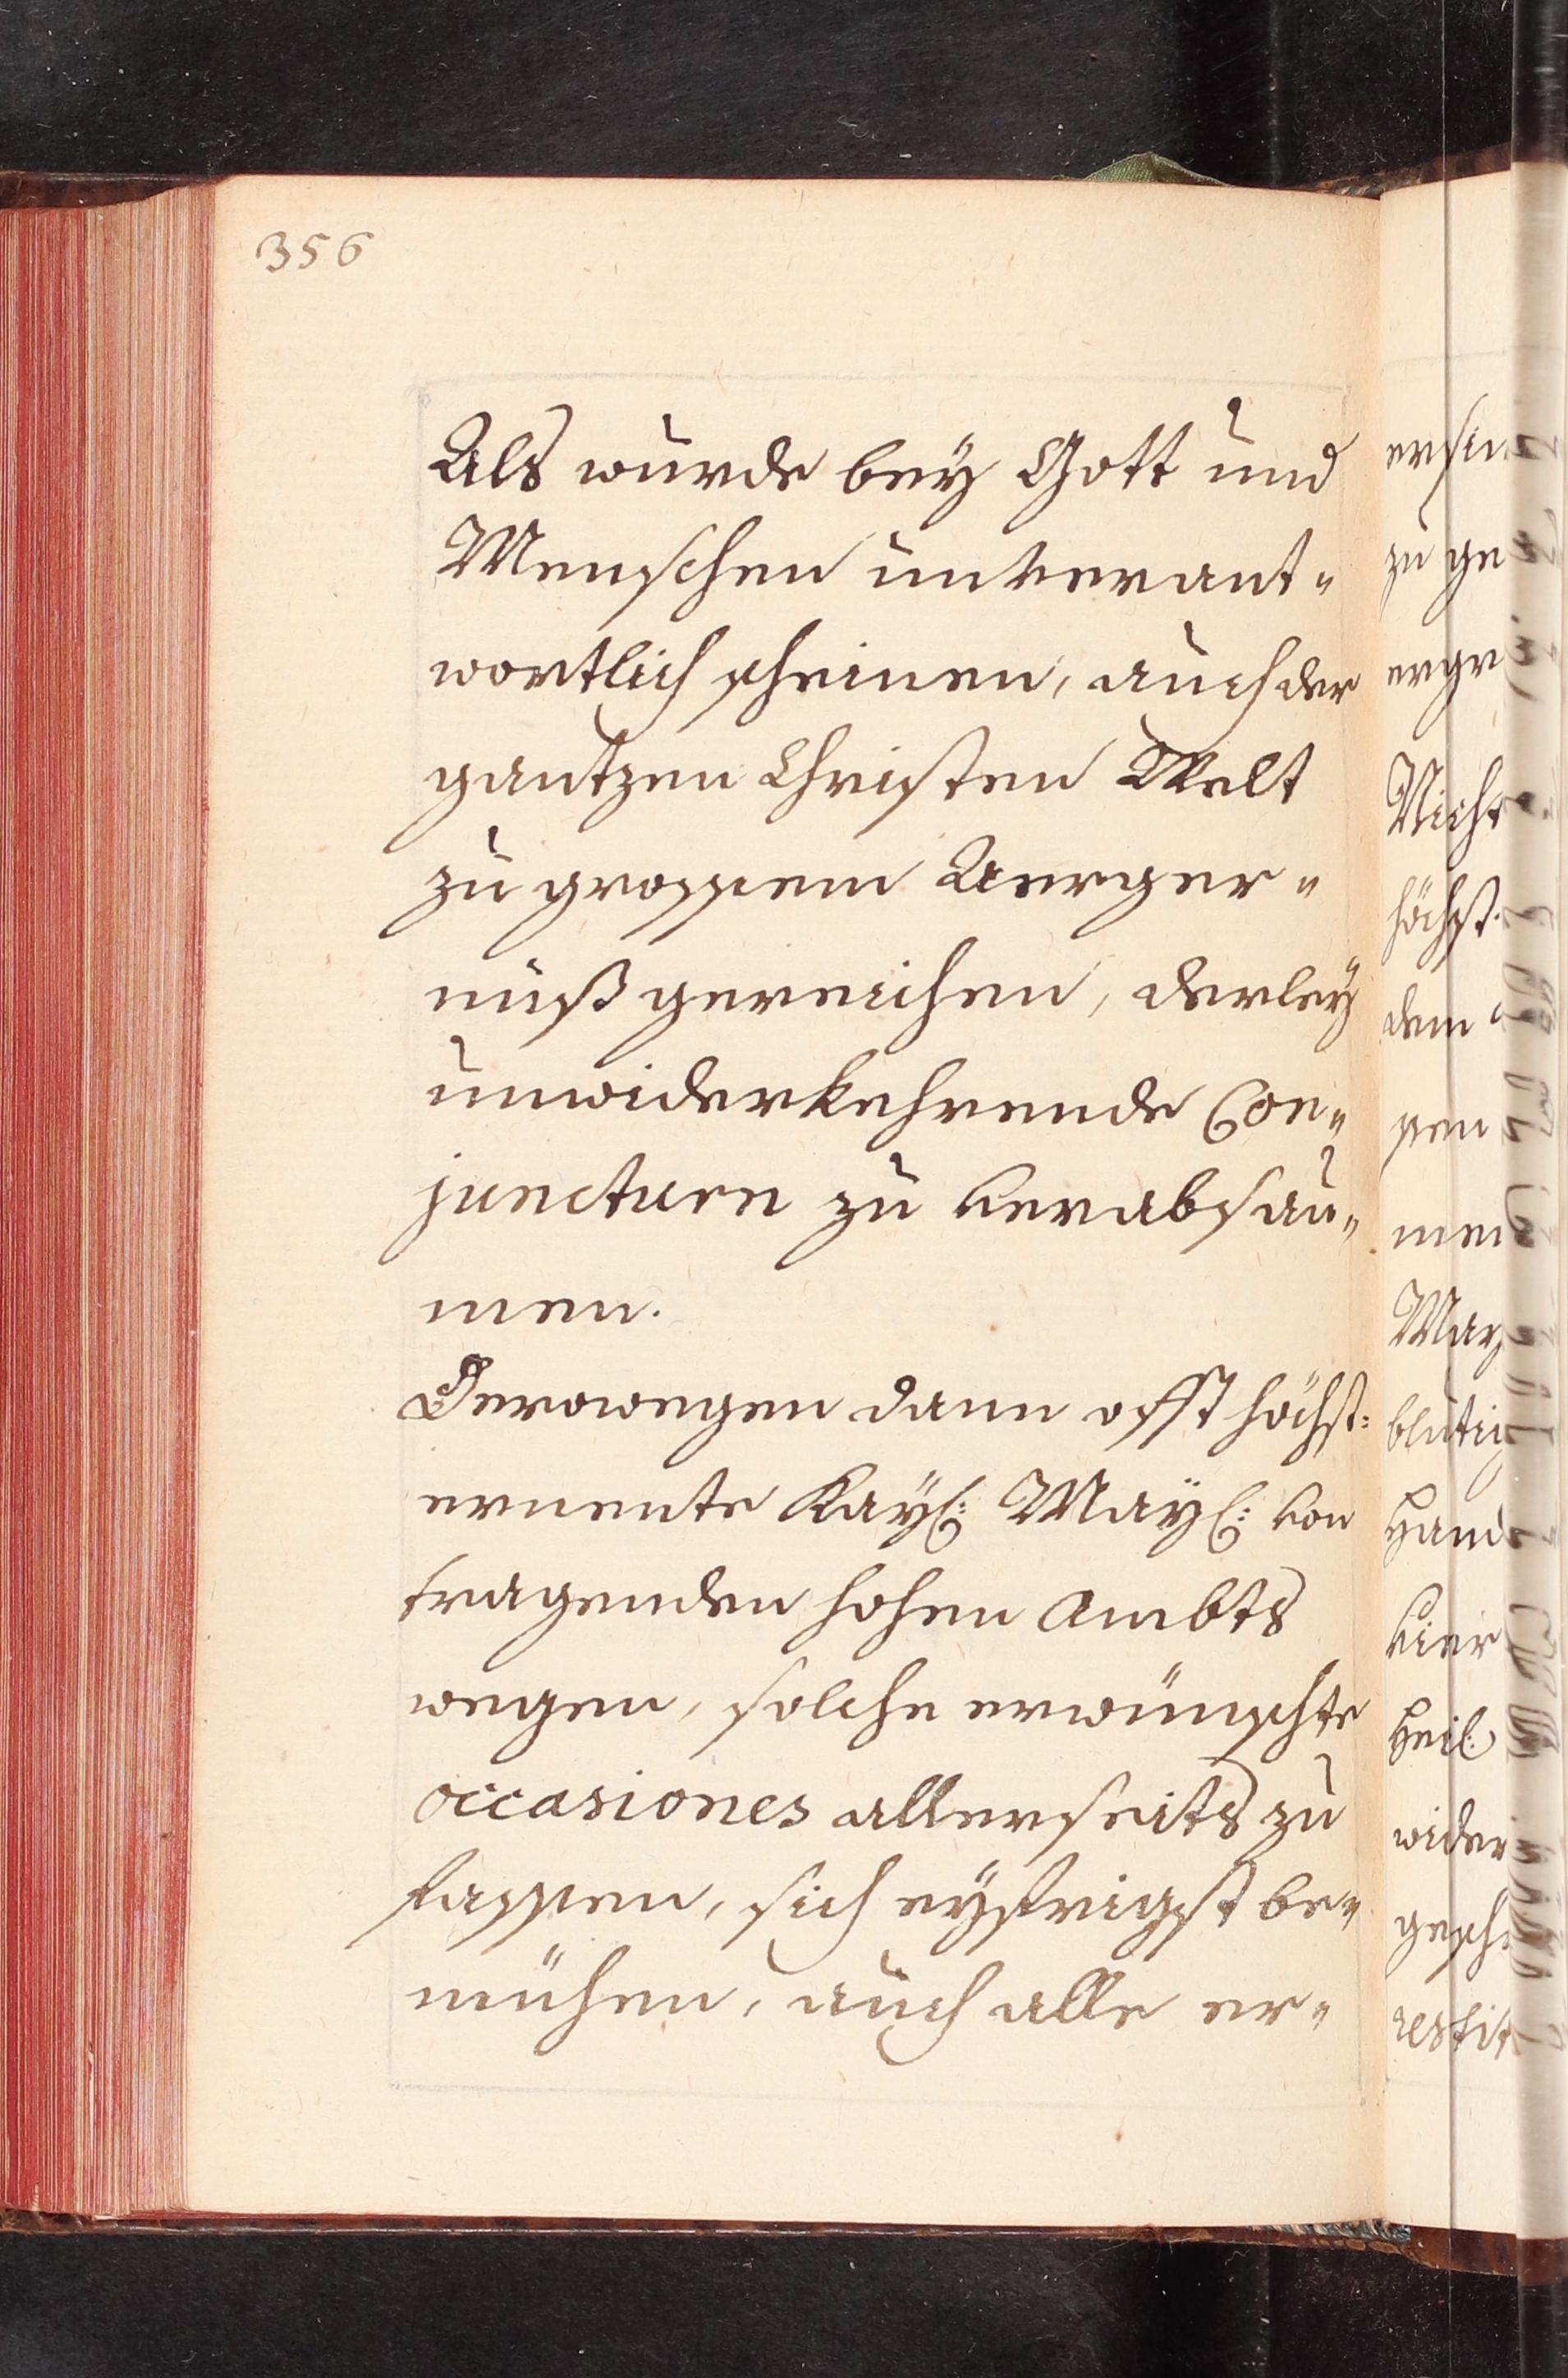 356
Als wurde beÿ Gott und
Menschen unverant„
wortlich scheinen, auch der
gantzen Christen Welt
zu grossem Aerger„
nuß gereichen, derleÿ
unwiderkehrende Con„
juncturn zu verabsau„
men.
Derowegen dann offt höchst:
ernente Kaÿl: Maÿl: von
tragenden hohen Ambts
wegen, solche erwünschte
occasiones allerseits zu
fassen, sich eÿfrigst be„
mühen, auch alle er„
zu ge
ergr
Nicht
höchst
dem
sen
men
May
blutig
Hand
vier
Heil:
wider
gesch
restit